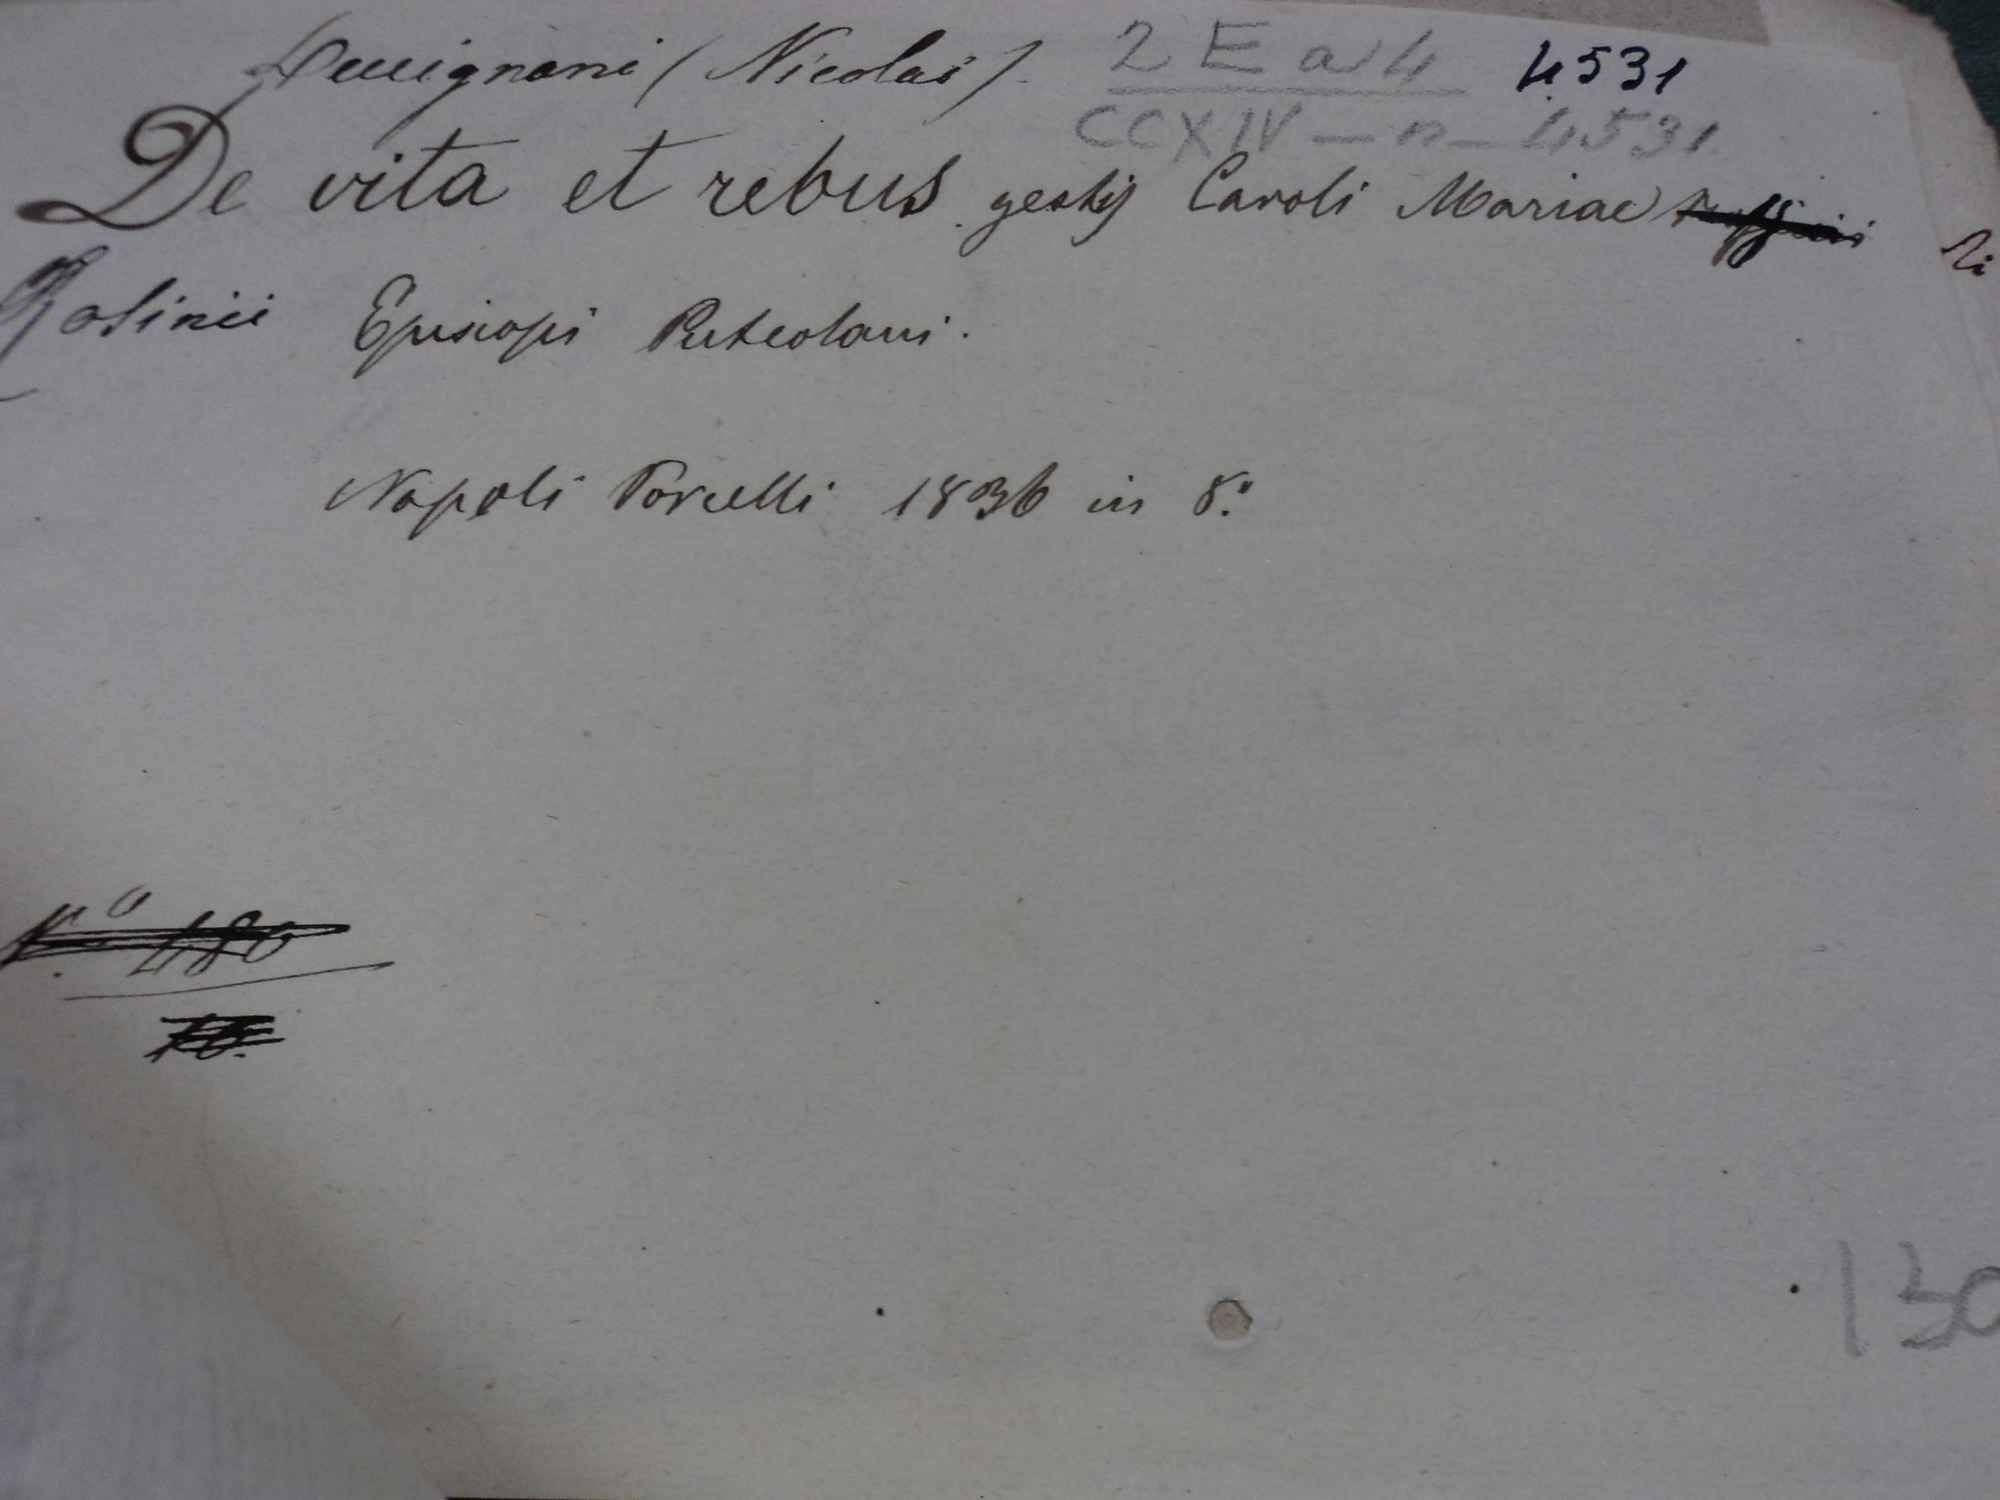 (Nicolai). 2 E a 4 4531
CCXIV - n - 4531
De vita et rebus gestis Caroli Mariae
Rosinii Episcopi Puteolani.
Napoli Porcelli 1836 in 8.°
N.° 480
130